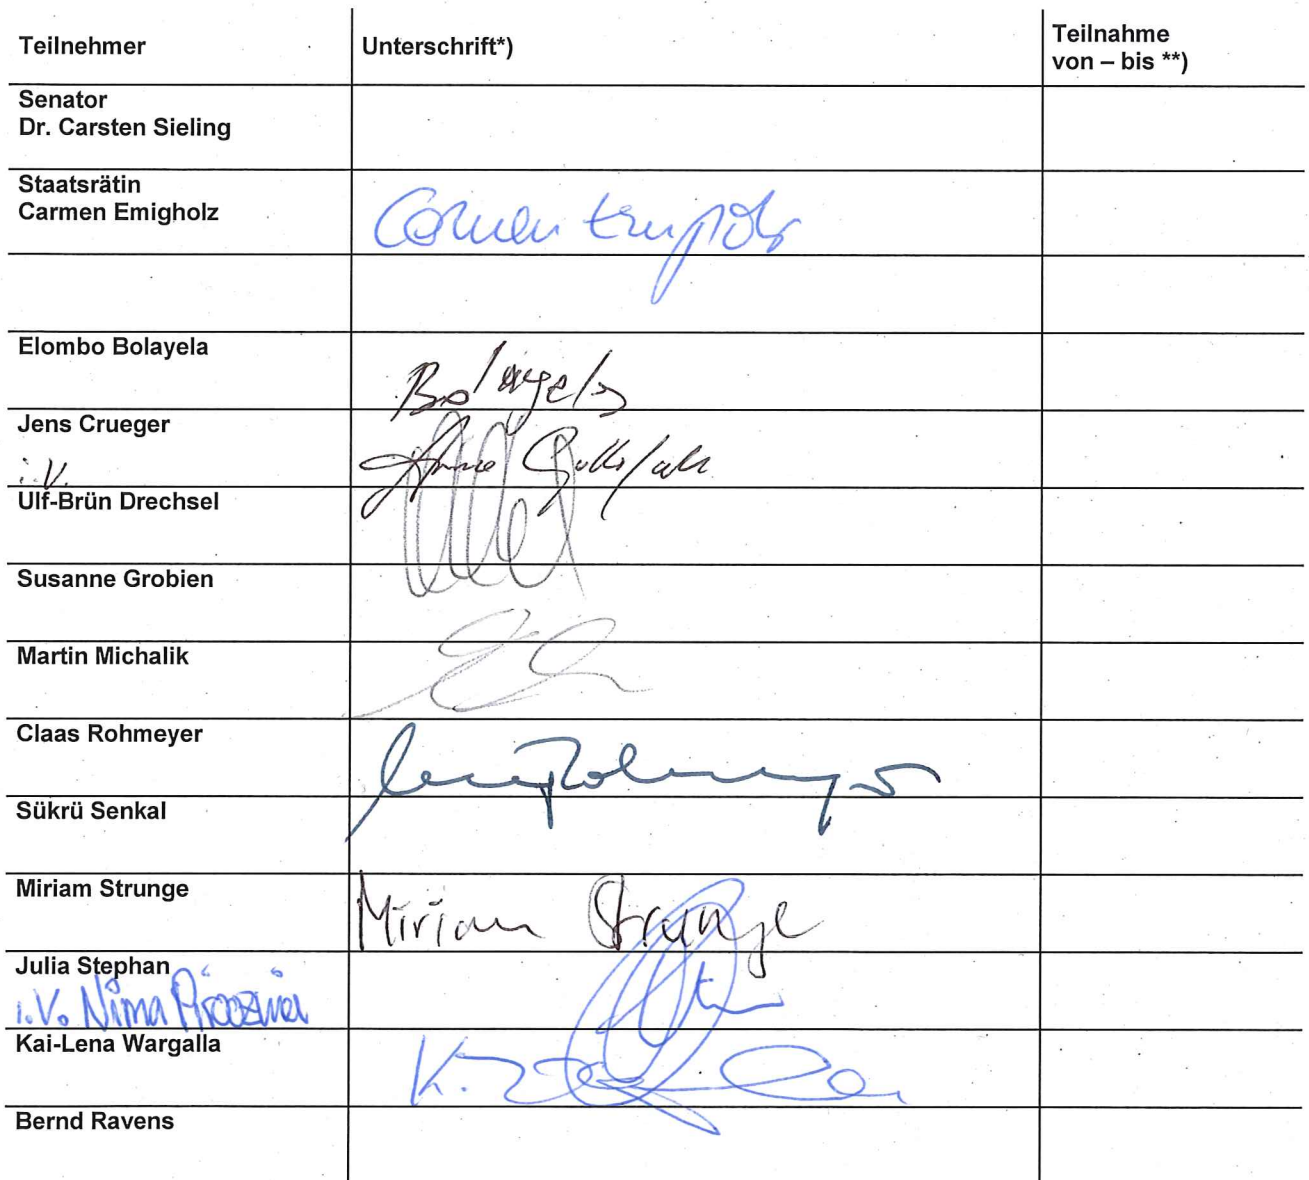 Teilnehmer
Unterschrift*)
Teilnahme
von – bis **)
Senator
Dr. Carsten Sieling
Staatsrätin
Carmen Emigholz
Carmen Emigholz
Elombo Bolayela
Bolayela
Jens Crueger
i.V.
Ulf-Brün Drechsel
Susanne Grobien
Martin Michalik
Claas Rohmeyer
Claas Rohmeyer
Sükrü Senkal
Miriam Strunge
Miriam Strunge
Julia Stephan
i.V. Nima Pirooznia
Kai-Lena Wargalla
K.
Bernd Ravens